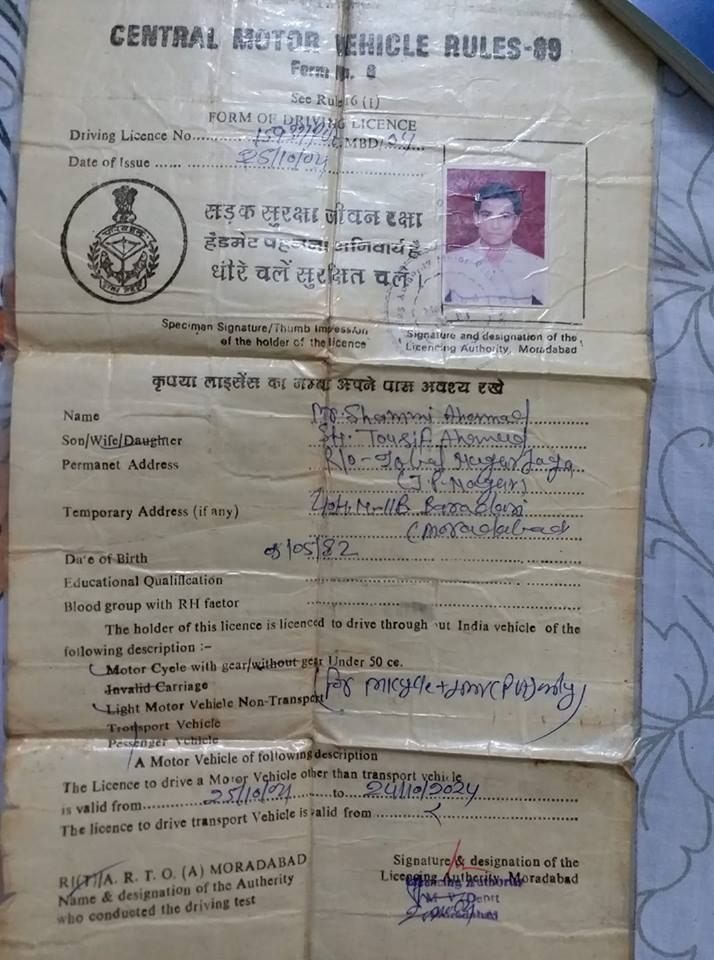 CENTRAL MOTOR VEHICLE RULES-89
Form No. 6
See Rule 16 (1)
FORM OF DRIVING LICENCE
Driving Licence No. MBD/04
Date of Issue ...... 25/10/04
सड़क सुरक्षा जीवन रक्षा
हेलमेट पहनना अनिवार्य है
धीरे चलें सुरक्षित चलें।
Specimen Signature/Thumb Impession
of the holder of the licence
Signature and designation of the
Licencing Authority, Moradabad
कृपया लाइसेंस का नम्बर अपने पास अवश्य रखे
Name Mr. Shammi Ahemad
Son/Wife/Daughter Sh. Tousif Ahemed
Permanet Address R/o-
(J.P. Nagar)
Temporary Address (if any) Baradari
(Moradabad
Date of Birth /05/82
Educational Qualification
Blood group with RH factor
The holder of this licence is licenced to drive through out India vehicle of the
following description :-
Motor Cycle with gear/without gear Under 50 cc.
Invalid Carriage
Light Motor Vehicle Non-Transport (For M/cycle + LMV (Pvt) only)
Transport Vehicle
Passenger Vehicle
A Motor Vehicle of following description
The Licence to drive a Motor Vehicle other than transport vehicle
is valid from 25/10/04 to 24/10/2024
The licence to drive transport Vehicle is valid from
A. R. T. O. (A) MORADABAD
Name & designation of the Autherity
who conducted the driving test
Signature & designation of the
Licencing Authority, Moradabad